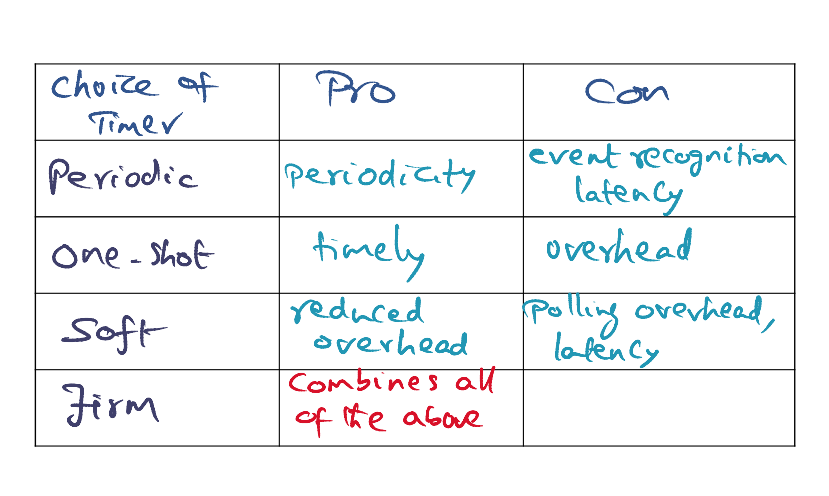 Choice of Timer
Pro
Con
Periodic
periodicity
event recognition latency
One-shot
timely
overhead
Soft
reduced overhead
Polling overhead, latency
Firm
Combines all of the above